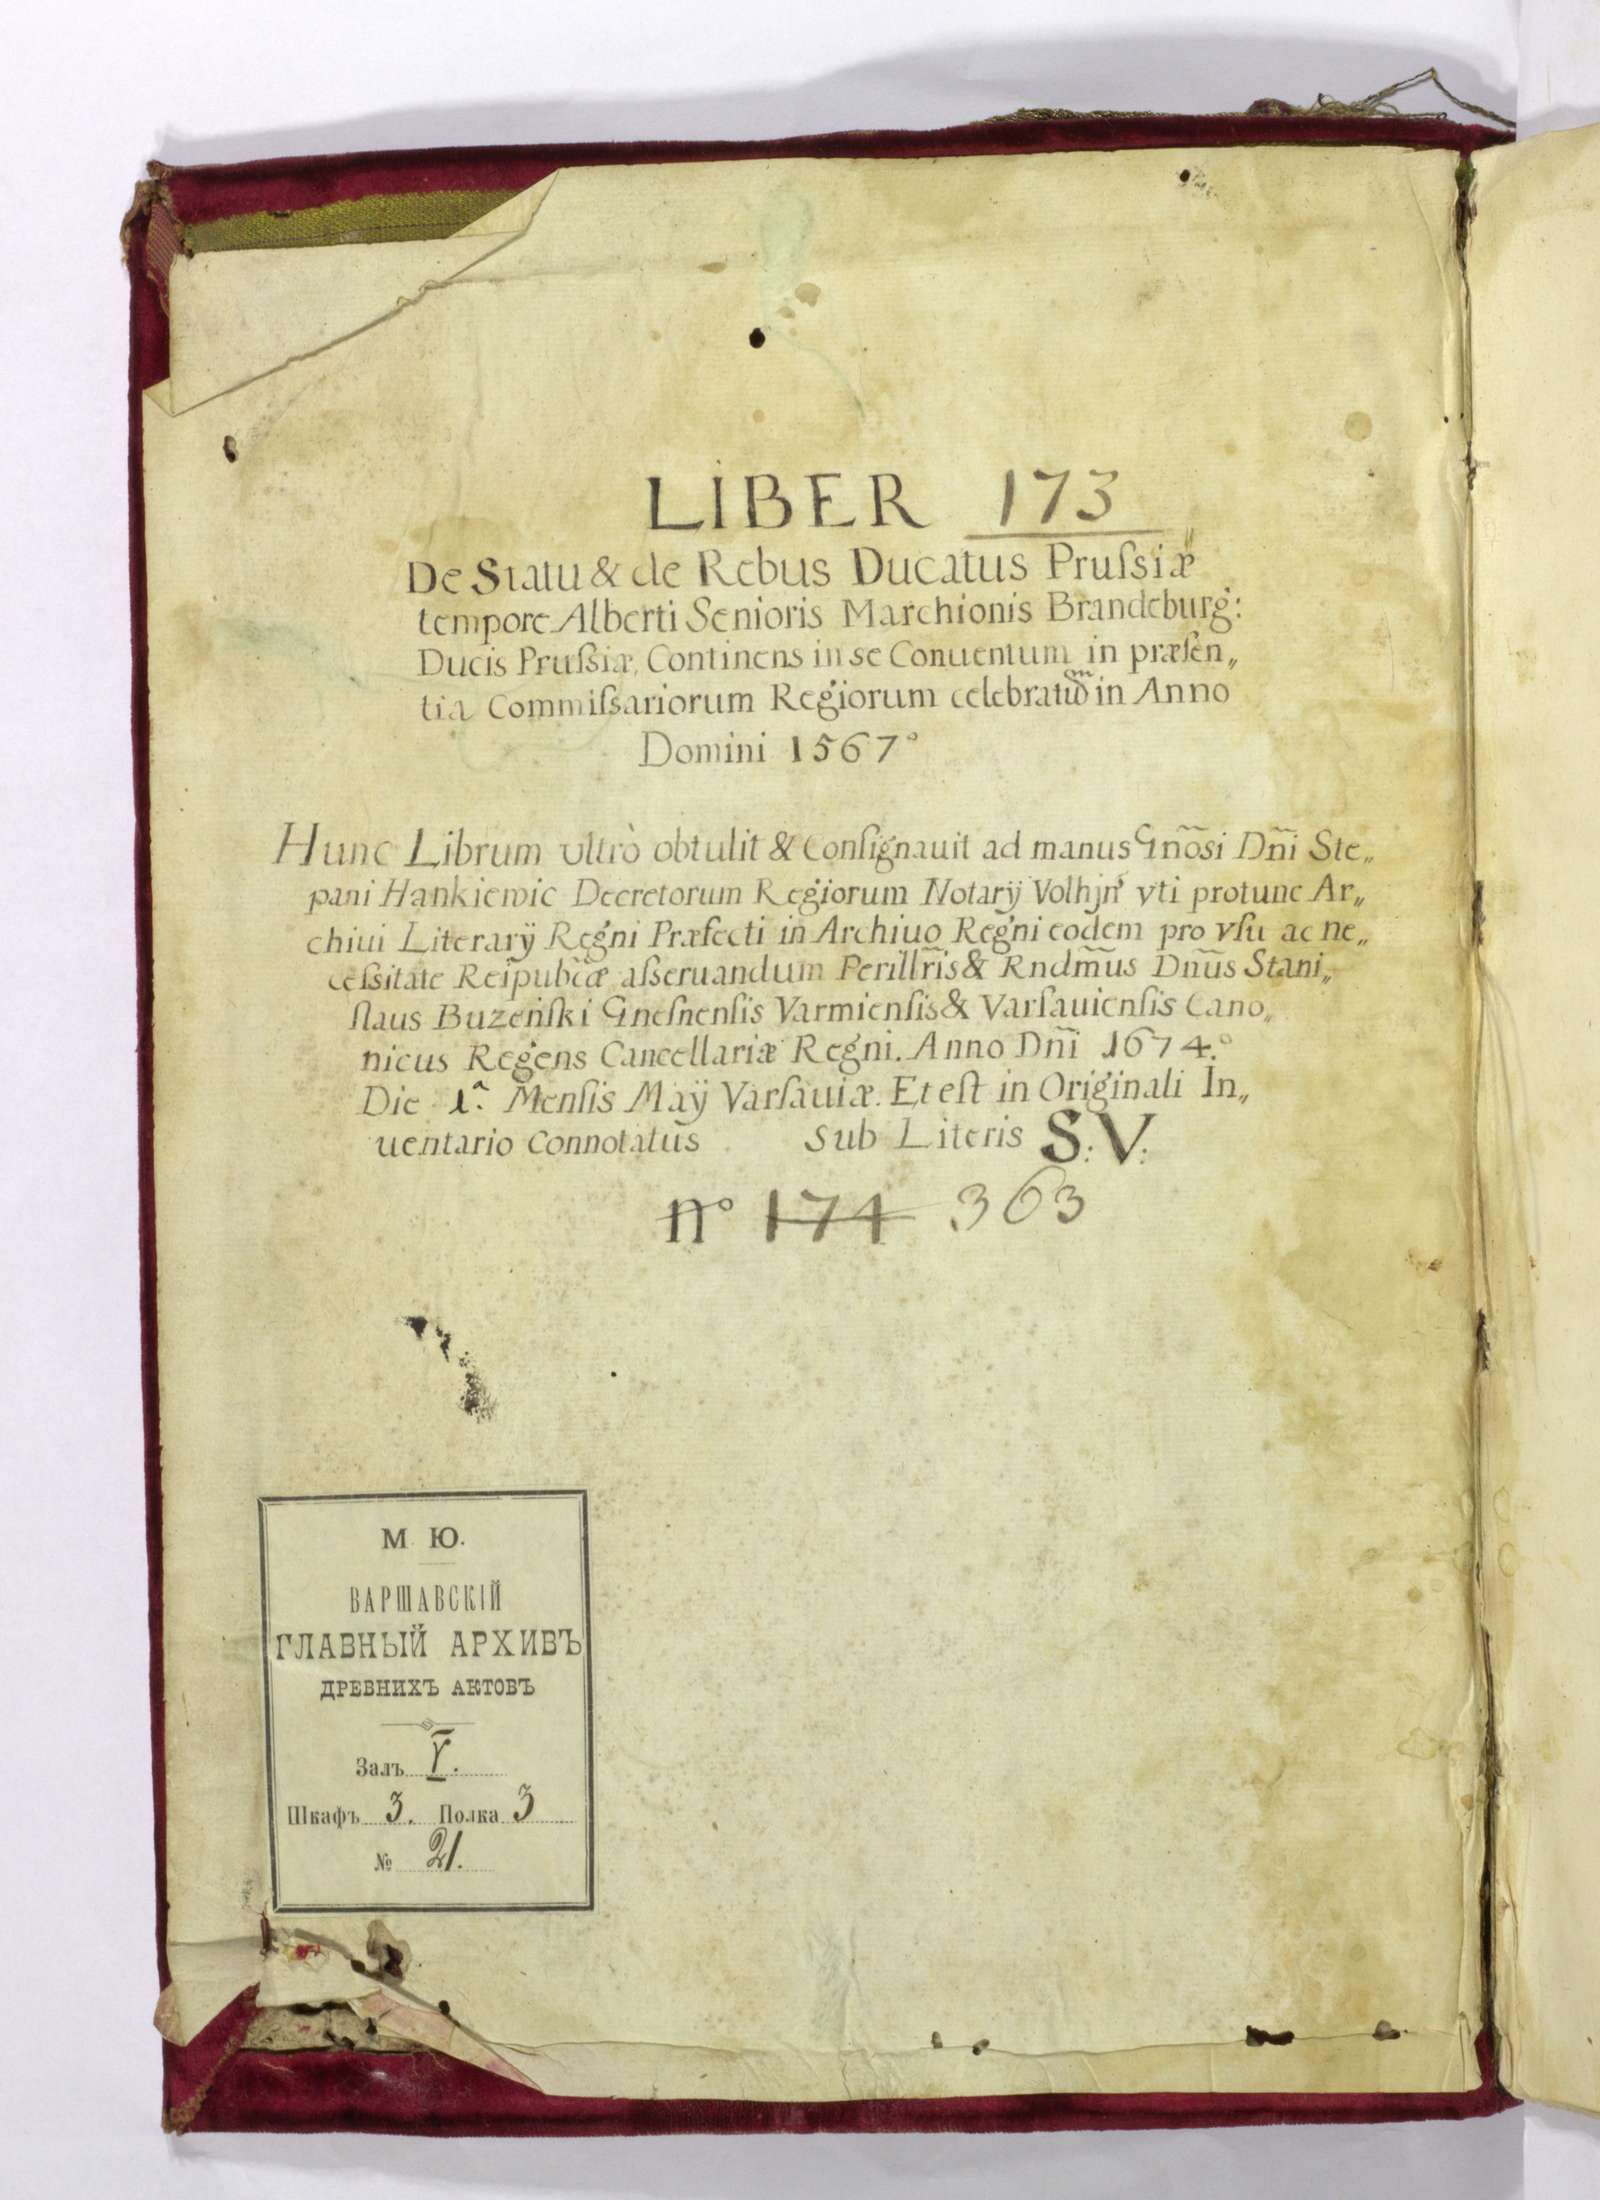 LIBER 173
De Statu & de Rebus Ducatus Pruſsiæ
tempore Alberti Senioris Marchionis Brandeburg:
Ducis Pruſsiæ, Continens in se Conuentum in præſen„
tia Commiſsariorum Regiorum celebratũm in Anno
Domini 1567°
Hunc Librum vltrò obtulit & Conſignauit ad manus Gnõsi Dñi Ste„
pani Hankiewic Decretorum Regiorum Notarÿ Volhjn̄ vti protunc Ar„
chiui Literarÿ Regni Præfecti in Archiuo Regni eodem pro vſu ac ne„
ceſsitate Reipub̃cæ aſseruandum Perillr̃is & Rndm̃us Dñus Stani„
ſlaus Buzeński Gneſnenſis Varmienſis & Varſauienſis Cano„
nicus Regens Cancellariæ Regni. Anno Dñi 1674.°
Die 1.ª Menſis Maÿ Varſauiæ. Et eſt in Originali In„
uentario Connotatus Sub Literis S: V:
n° 174 363
М. Ю.
ВАРШАВСКІЙ
ГЛАВНЫЙ АРХИВЪ
ДРЕВНИХЪ АКТОВЪ
Залъ V.
Шкафъ 3. Полка 3
№ 21.